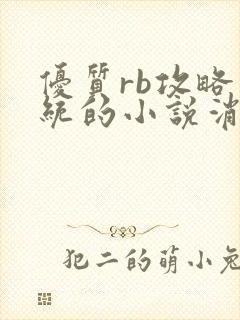 優質rb攻略
統的小說消
犯二的萌小兔